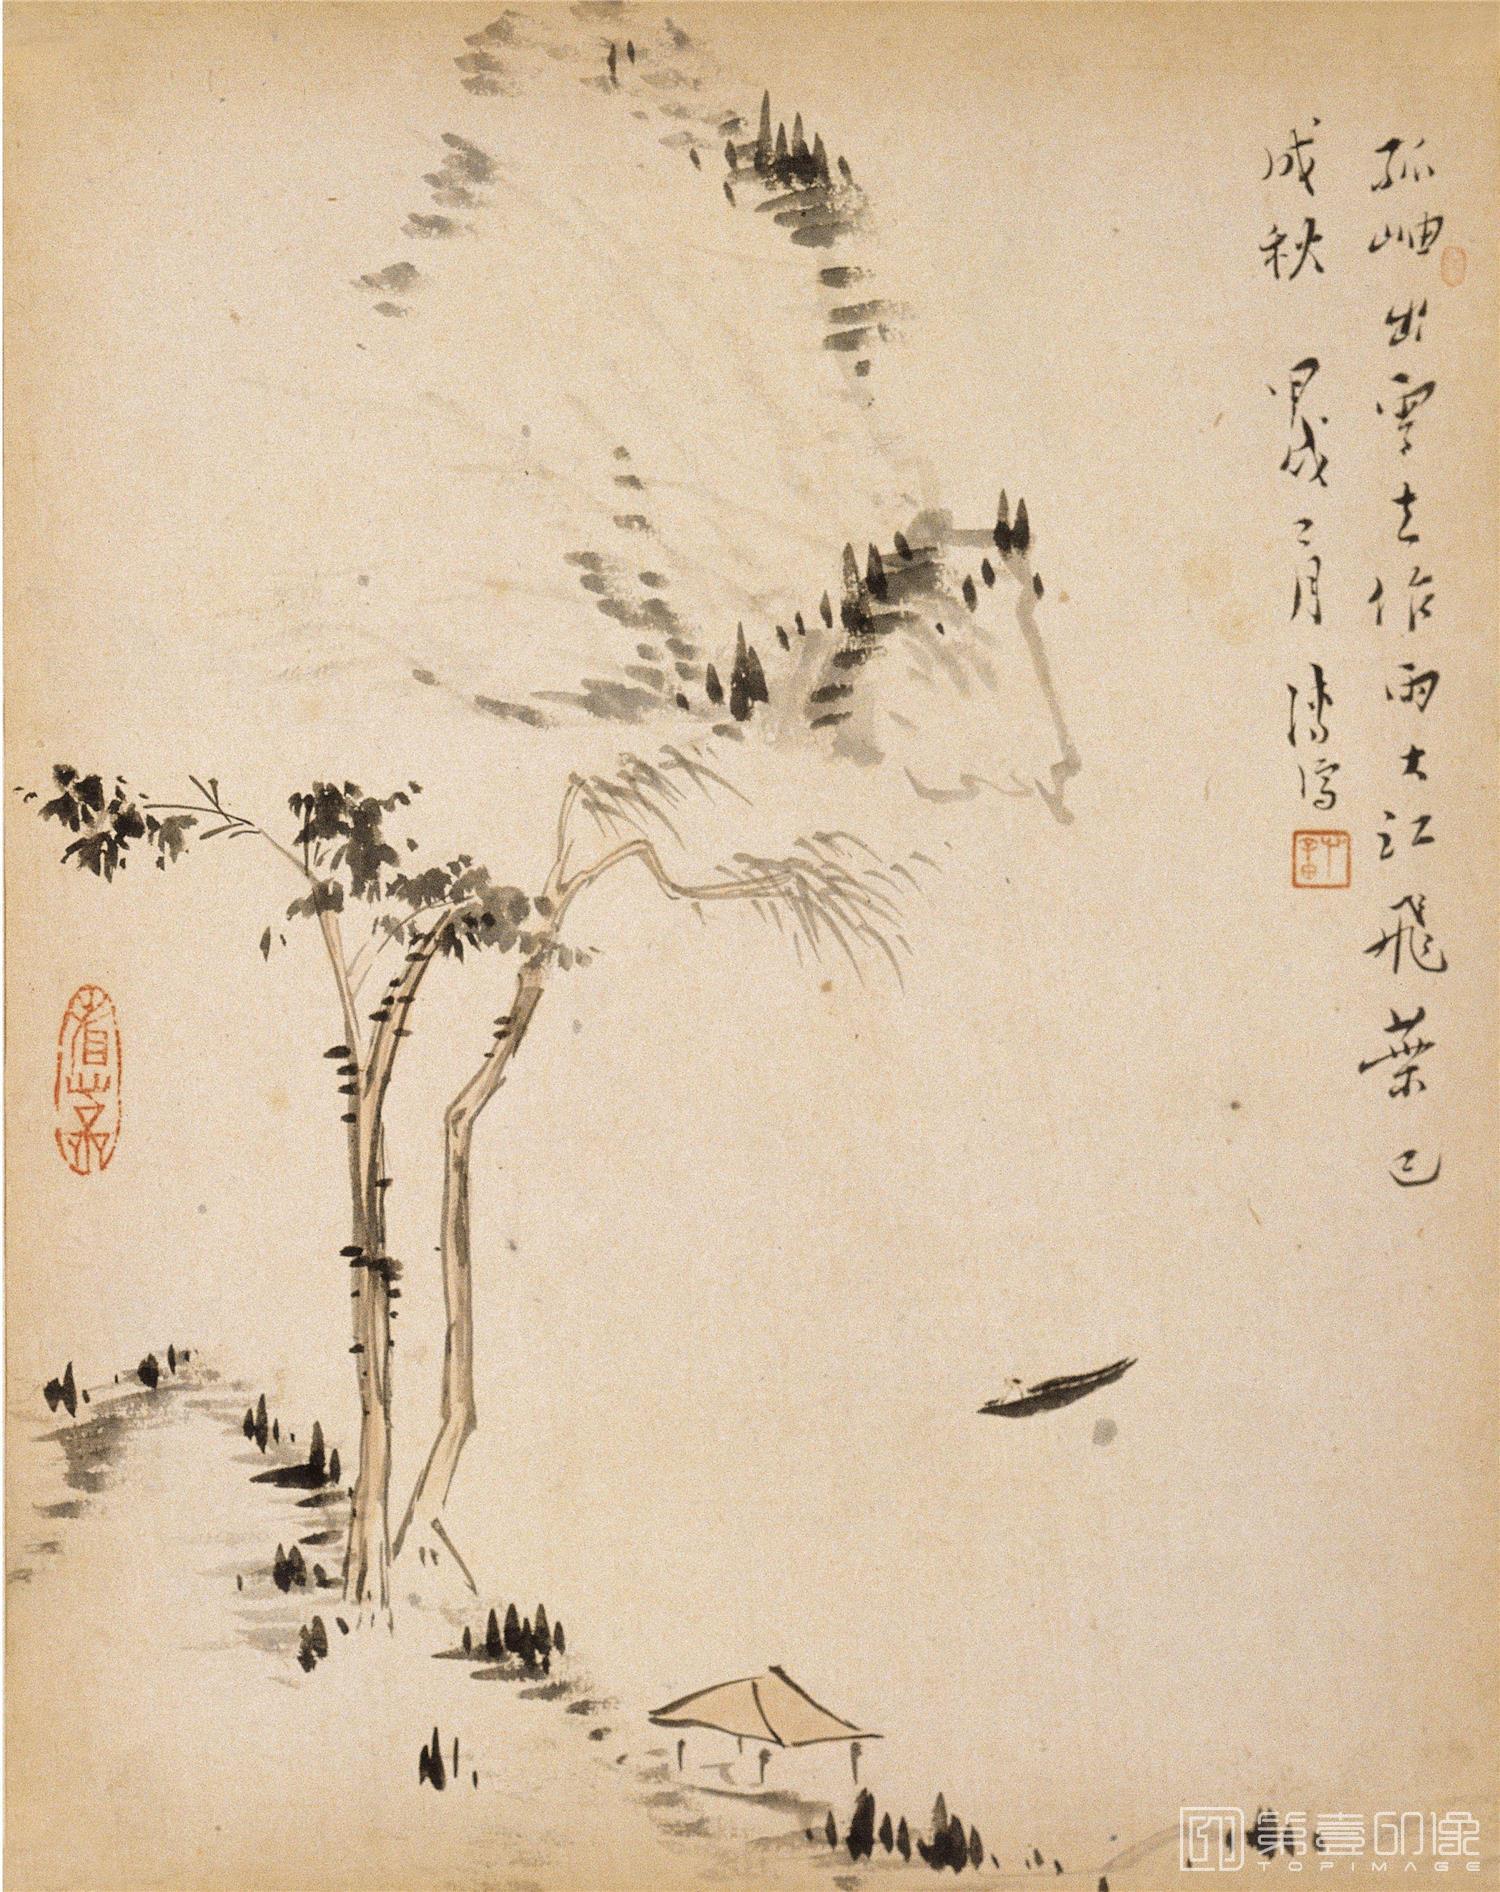 孤岫出雲去作雨大江飛葉已
成秋 甲戌二月 寫
第壹印像
TOPIMAGE